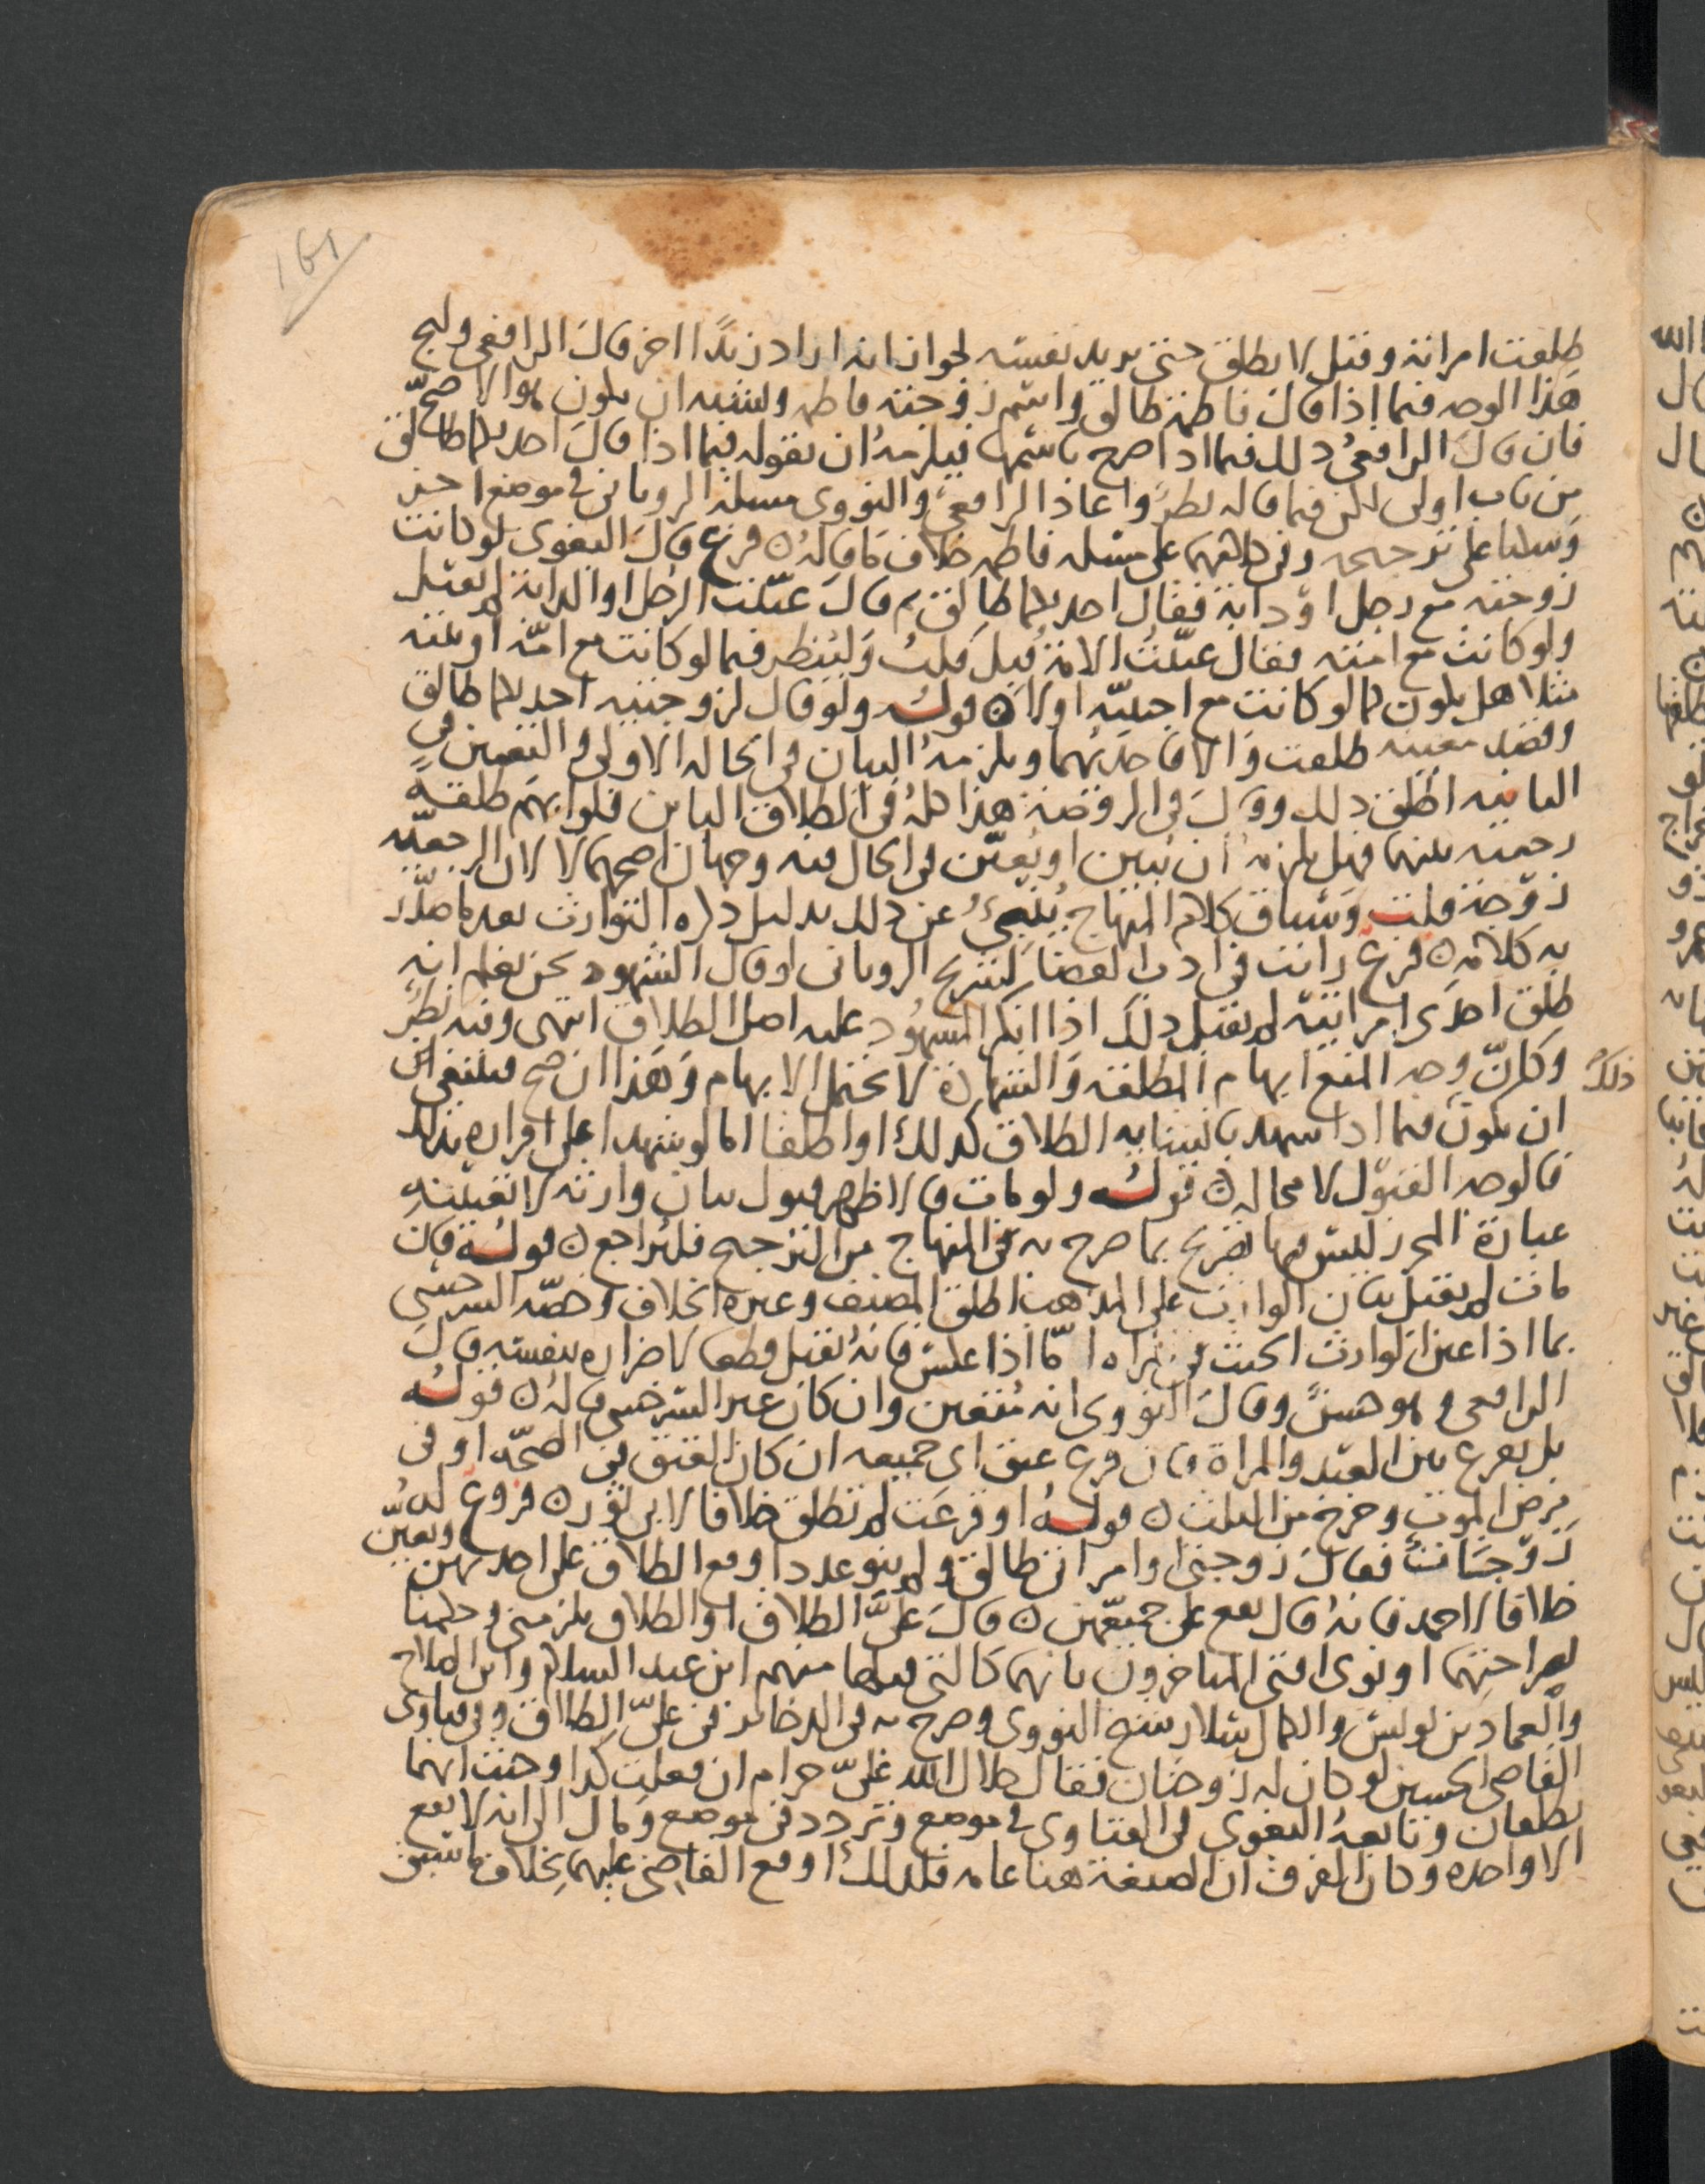 161
طلقت امراته وقيل لا يطلق حتى يريد نفسه لجواز انه اراد زيدًا اخر قال الرافعى وليج
هذا الوجه فيما اذا قال فاطمة طالق واسم زوجته فاطمه ويشبه ان يكون هوا لاصح
فان قال الرافعى ذلك فيما اذا صرح باسمها فيلزمه ان يقوله فيما اذا قال احديكما طالق
من باب اولى لكن فيما قاله نظر واعاد الرافعى والنووى مسئلة الرويانى فى موضع اخر
وسكتا على ترجيحه وفى كلامهما على مسئله فاطمه خلاف ما قاله ن فرع قال البغوى لو كانت
زوجته مع رجل او دابة فقال احديكما طالق ثم قال عنيت الرجل او الدابة لم يقبل
ولو كانت مع امته فقال عنيت الامة قبل قلت ولينظر فيما لو كانت مع امه او بنته
مثلا هل يكون كما لو كانت مع اجنبيه اولا ن قوله ولو قال لزوجتيه احديكما طالق
وقصد معينه طلقت والا فاحديهما ويلزمه البيان فى الحاله الاولى والتعيين فى
الثانيه اطلق ذلك وقال فى الروضة هذا كله فى الطلاق البائن فلو ابهم طلقةً
رجعيه بينهما فهل يلزمه ان يبين او يعين فى الحال فيه وجهان اصحهما لا لان الرجعيه
زوجة قلت وسياق كلام المنهاج ينبئ عن ذلك بدليل ذكره التوارث بعد ما صدّر
به كلامه ن فرع رايت فى ادب القضا لشريح الرويانى لو قال الشهود نحن نعلم انه
طلق احدى امراتيه لم يقبل ذلك اذا انكر المشهود عليه اصل الطلاق انتهى وفيه نظر
وكان وجه المنع ابهام المطلقة والشهادة لا تحتمل الابهام وهذا ان صح فينبغى
ذلك
ان يكون فيما اذا شهدت بانشائه الطلاق كذلك او اطلقا اما لو شهدا على اقراره بذلك
فالوجه القبول لا محاله ن قوله ولو مات فالاظهر قبول بيان وارثه لا تعيينه
عبارة المحرر ليس فيها تصريح بما صرح به فى المنهاج من الترجيح فليراجع ن قوله فان
مات لم يقبل بيان الوارث على المذهب اطلق المصنف وغيره الخلاف وخصّه السرخسى
بما اذا عين الوارث الحنث فى المراه امّا اذا عكس فانه يقبل قطعا لاضراره بنفسه قال
الرافعى وهو حسن وقال النووى انه متعين وان كان غير السرخسى قاله ن قوله
بل يقرع بين العبد والمراة فان قرع عتق اى جميعه ان كان العتق فى الصحة او فى
مرض الموت وخرج من الثلث ن قوله او قرعت لم تطلق خلافا لابى ثور ن فروع له
زوجتان فقال زوجتى او امراتى طالق ولم ينو عددا وقع الطلاق على احديهن ويعيّن
خلافا لاحمد فانه قال يقع على جميعهن ن قال علىّ الطلاق او الطلاق يلزمنى وحكمنا
بصراحتهما او نوى افتى المتاخرون بانهما كالتى قبلها منهم ابن عبد السلام وابن الصلاح
والعماد بن يونس والكمال سلار شيخ النووى وصرح به فى الدخائر فى علىّ الطلاق وفى فتاوى
القاضى الحسين لو كان له زوجتان فقال حلال الله علىّ حرام ان فعلت كذا وحنث انهما
يطلقان وتابعه البغوى فى الفتاوى فى موضع وتردد فى موضع ومال الى انه لا يقع
الا واحده وكان الفرق ان الصيغة هنا عامه فلذلك اوقع القاضى عليهما بخلاف ما سبق